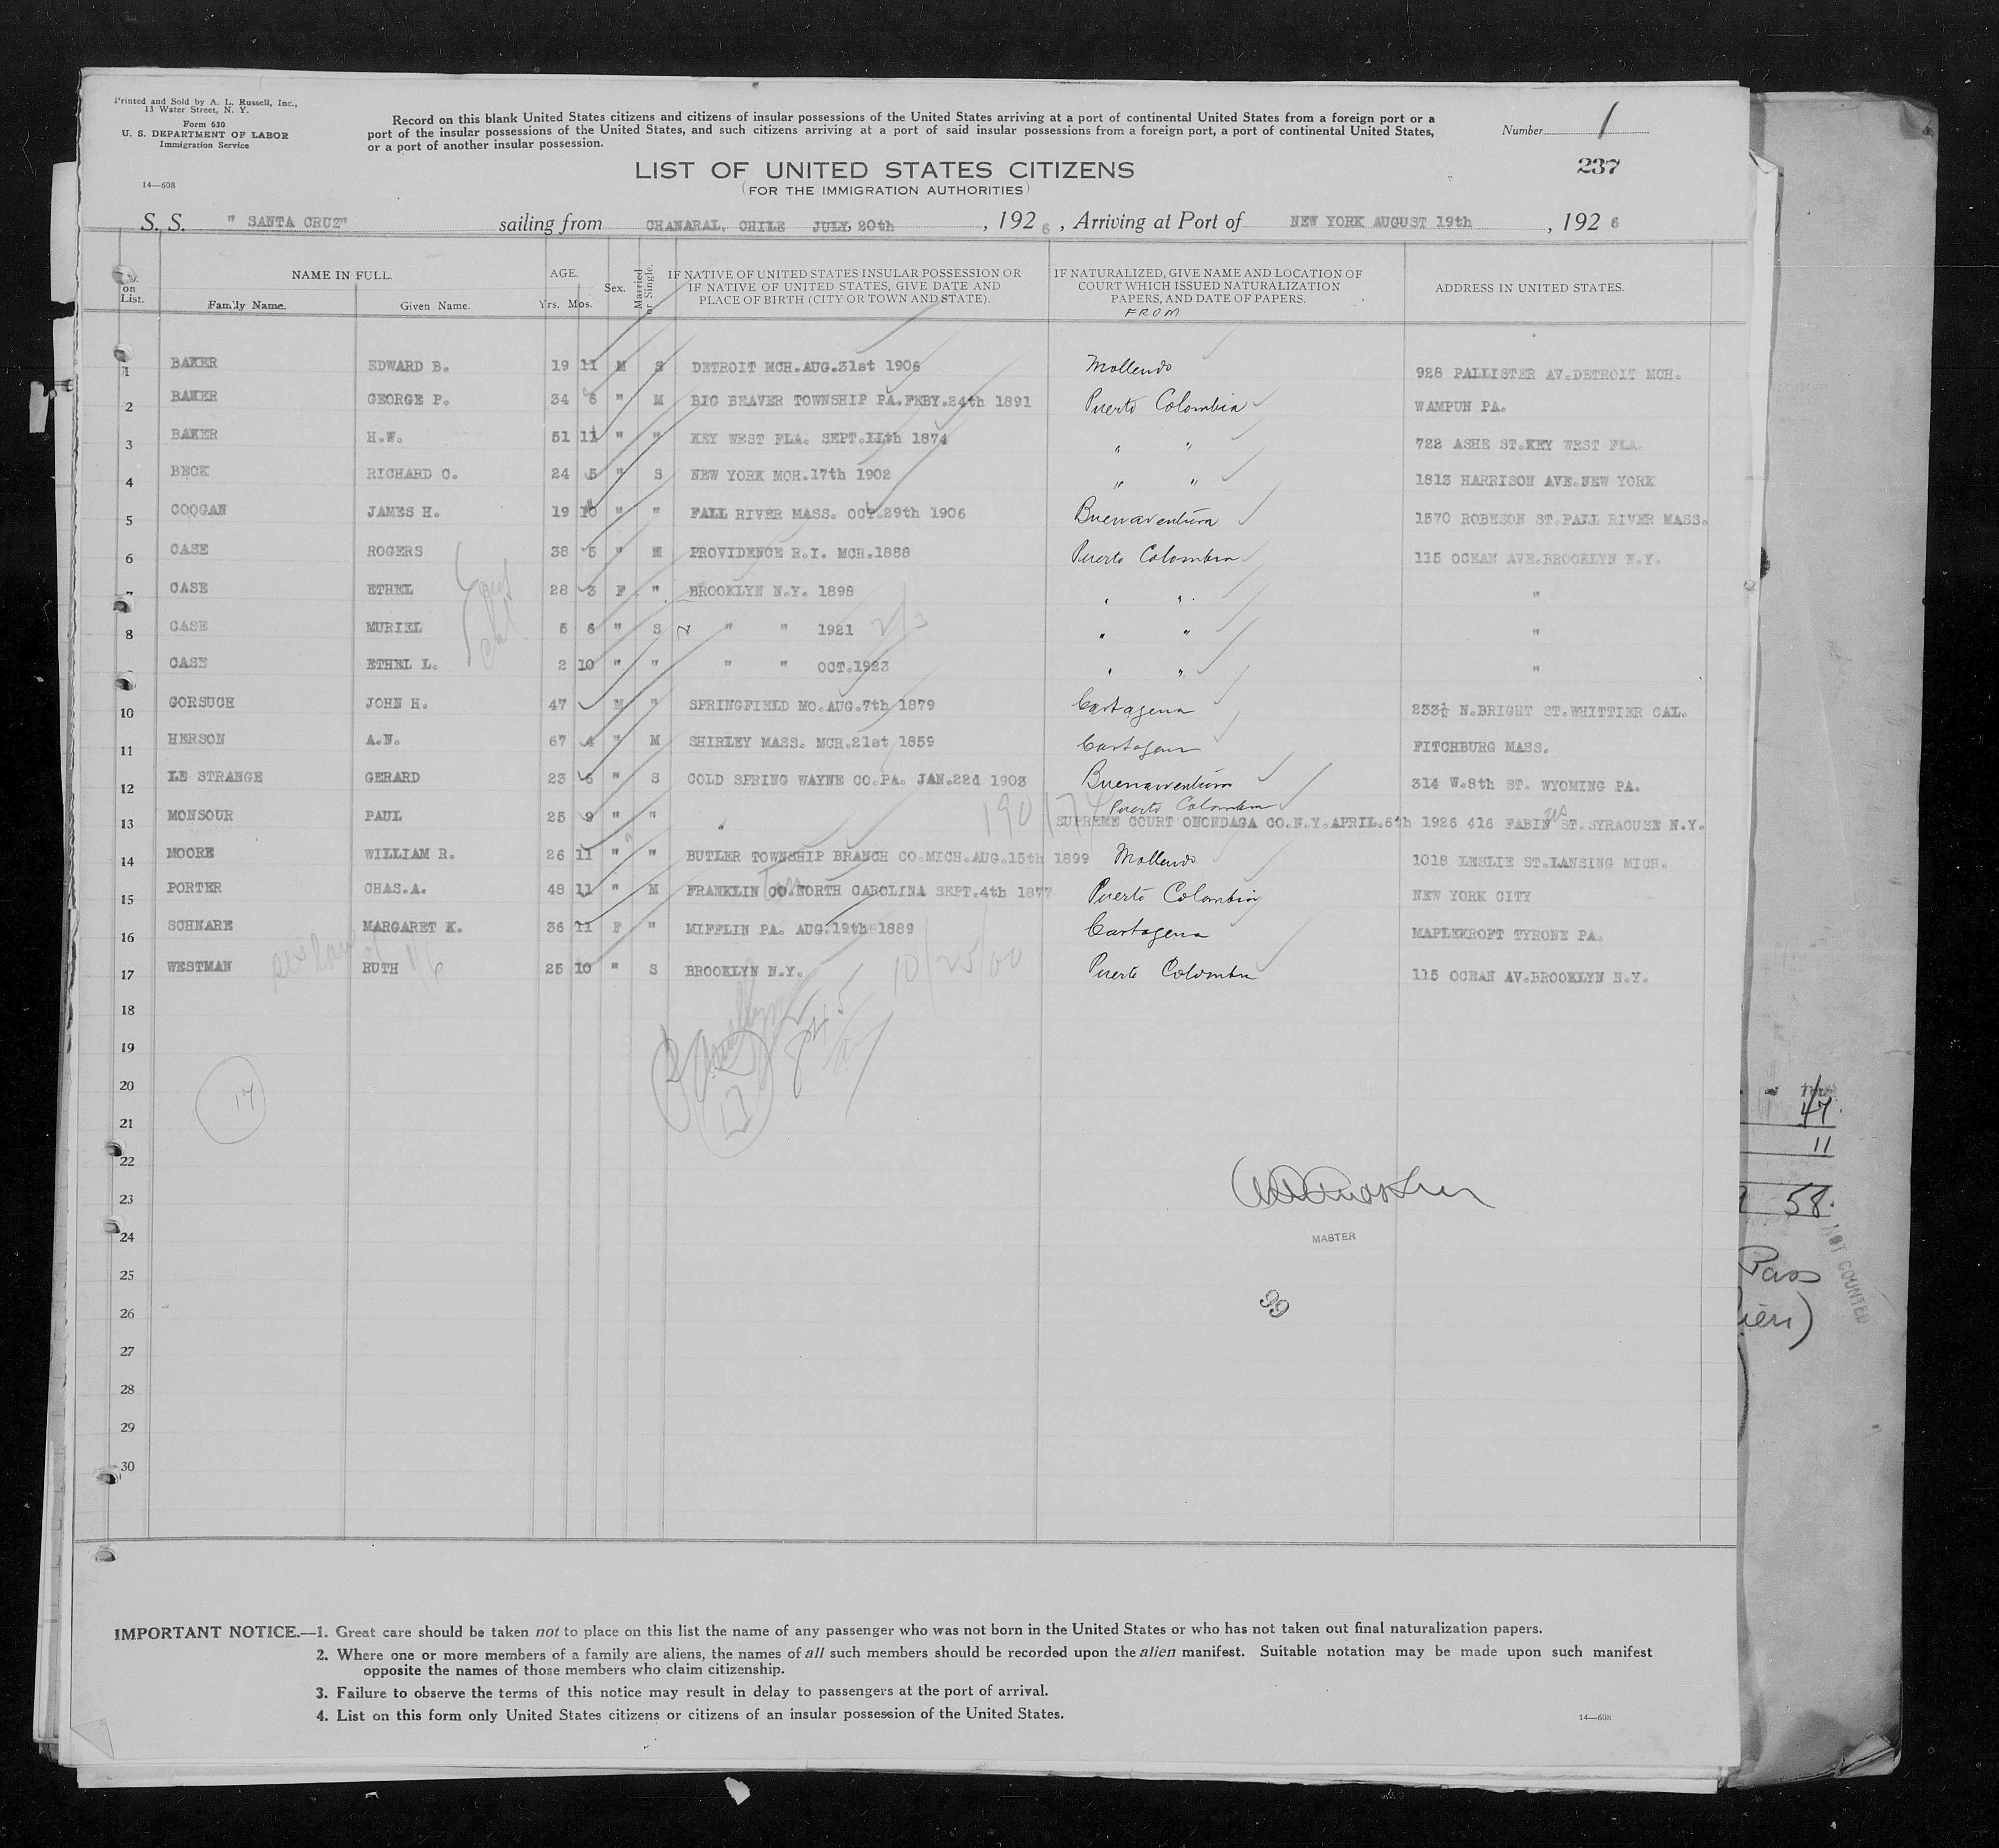 Printed and Sold by A. L. Russell, Inc.,
13 Water Street, N. Y.
Form 630
U. S. DEPARTMENT OF LABOR
Immigration Service
14—608
Record on this blank United States citizens and citizens of insular possessions of the United States arriving at a port of continental United States from a foreign port or a
port of the insular possessions of the United States, and such citizens arriving at a port of said insular possessions from a foreign port, a port of continental United States,
or a port of another insular possession.
Number 1
237
LIST OF UNITED STATES CITIZENS
(FOR THE IMMIGRATION AUTHORITIES)
S. S. " SANTA CRUZ" sailing from CHANARAL, CHILE JULY, 20th , 192 6 , Arriving at Port of NEW YORK AUGUST 19th , 192 6
No. on List. NAME IN FULL. Family Name. Given Name. AGE. Yrs. Mos. Sex. Married or Single. IF NATIVE OF UNITED STATES INSULAR POSSESSION OR IF NATIVE OF UNITED STATES, GIVE DATE AND PLACE OF BIRTH (CITY OR TOWN AND STATE). IF NATURALIZED, GIVE NAME AND LOCATION OF COURT WHICH ISSUED NATURALIZATION PAPERS, AND DATE OF PAPERS. FROM ADDRESS IN UNITED STATES.
1 BAKER EDWARD B. 19 11 M S DETROIT MCH.AUG.31st 1906 Mollendo 928 PALLISTER AV.DETROIT MCH.
2 BAKER GEORGE P. 34 6 " M BIG BEAVER TOWNSHIP PA.FEBY.24th 1891 Puerto Colombia WAMPUN PA.
3 BAKER H.W. 51 11 " " KEY WEST FLA. SEPT.IIth 1874 " " 722 ASHE ST.KEY WEST FLA.
4 BECK RICHARD C. 24 5 " S NEW YORK MCH.17th 1902 " " 1813 HARRISON AVE.NEW YORK
5 COOGAN JAMES H. 19 10 " " FALL RIVER MASS. OCT.29th 1906 Buenaventura 1570 ROBESON ST.FALL RIVER MASS.
6 CASE ROGERS 38 5 " M PROVIDENCE R.I. MCH.1888 Puerto Colombia 115 OCEAN AVE.BROOKLYN N.Y.
7 CASE ETHEL 28 3 F " BROOKLYN N.Y. 1898 " " "
8 CASE MURIEL 5 6 " S " " 1921 2/3 " " "
CASE ETHEL L. 2 10 " " " " OCT.1923 " " "
10 GORSUCH JOHN H. 47 M " SPRINGFIELD MO.AUG.7th 1879 Cartagena 233½ N.BRIGHT ST.WHITTIER CAL.
11 HERSON A.N. 67 4 " M SHIRLEY MASS. MCH.21st 1859 Cartagena FITCHBURG MASS.
12 LE STRANGE GERARD 23 6 " S COLD SPRING WAYNE CO.PA. JAN.22d 1903 Buenaventura 314 W.8th ST. WYOMING PA.
Puerto Colombia
13 MONSOUR PAUL 25 9 " " " SUPREME COURT ONONDAGA CO.N.Y.APRIL.6th 1926 416 FABIN ST.SYRACUSE N.Y.
14 MOORE WILLIAM R. 26 11 " " BUTLER TOWNSHIP BRANCH CO.MICH.AUG.15th 1899 Mollendo 1018 LESLIE ST.LANSING MICH.
15 PORTER CHAS.A. 48 11 " M FRANKLIN CO.NORTH CAROLINA SEPT.4th 1877 Puerto Colombia NEW YORK CITY
16 SCHNARE MARGARET K. 36 11 F " MIFFLIN PA. AUG.19th 1889 Cartagena MAPLEKROFT TYRONE PA.
17 WESTMAN RUTH 25 10 " S BROOKLYN N.Y. 10/25/00 Puerto Colombia 115 OCEAN AV.BROOKLYN N.Y.
18
19
20
17
21
17
22
23
24
MASTER
25
26
99
27
28
29
30
47
11
58
NOT COUNTED
Pass
IMPORTANT NOTICE.—1. Great care should be taken not to place on this list the name of any passenger who was not born in the United States or who has not taken out final naturalization papers.
2. Where one or more members of a family are aliens, the names of all such members should be recorded upon the alien manifest. Suitable notation may be made upon such manifest
opposite the names of those members who claim citizenship.
3. Failure to observe the terms of this notice may result in delay to passengers at the port of arrival.
4. List on this form only United States citizens or citizens of an insular possession of the United States.
14—608